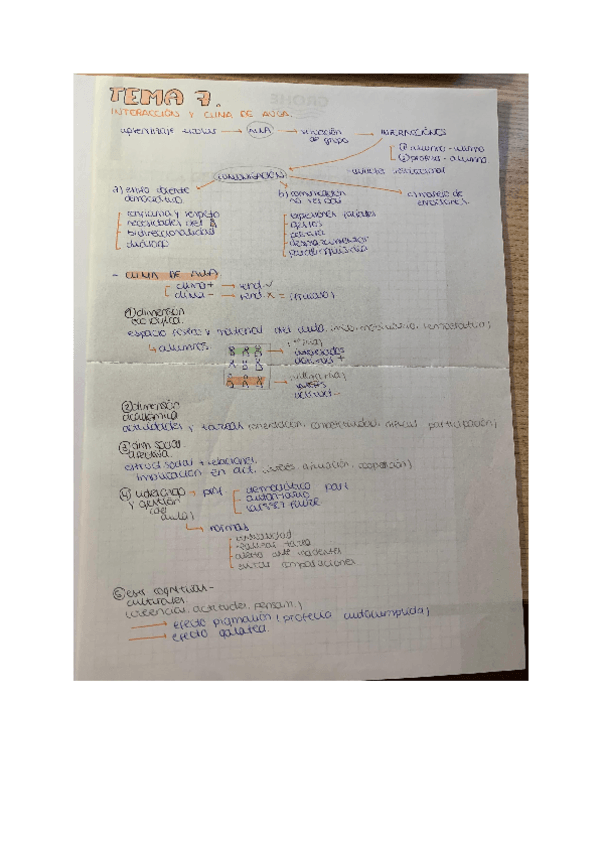 TEMA 7.
INTERACCIÓN Y CLIMA DE AULA.
aprendizaje escolar → AULA → situación de grupo → INTERACCIONES
① alumno - alumno
② profesor - alumno
COMUNICACIÓN
a) estilo docente democrático
confianza y respeto
necesidades del
bidireccionalidad
diálogo
b) comunicación no verbal
expresiones faciales
gestos
postura
desplazamientos
paralingüística
c) manejo de emociones.
- CLIMA DE AULA
clima + → rend. ✓
clima - → rend. x = (fracaso)
① dimensión ecológica.
espacio físico y material del aula
temperatura)
↳ alumnos
interesados
② dimensión académica
actividades y tareas (orientación, competitividad, participación)
③ dim. social - afectiva.
estruct. social + relaciones.
implicación en act. (interés, cooperación)
④ liderazgo y gestión (del aula)
→ prof.
democrático
autoritario
laissez faire
→ normas
puntualidad
realizar tarea
evitar comparaciones
⑤ esf. cognitivas - culturales.
(creencias, actitudes, pensam.)
→ efecto pigmalión (profecía autocumplida)
→ efecto galatea.